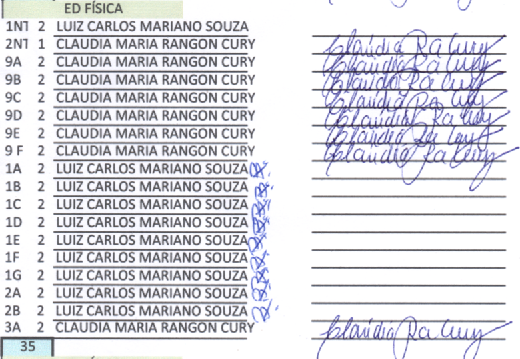 ED FÍSICA
1NT 2 LUIZ CARLOS MARIANO SOUZA
2NT 1 CLAUDIA MARIA RANGON CURY Claudia Ra Cury
9A 2 CLAUDIA MARIA RANGON CURY Claudia Ra Cury
9B 2 CLAUDIA MARIA RANGON CURY Claudia Ra Cury
9C 2 CLAUDIA MARIA RANGON CURY Claudia Ra Cury
9D 2 CLAUDIA MARIA RANGON CURY Claudia Ra Cury
9E 2 CLAUDIA MARIA RANGON CURY Claudia Ra Cury
9 F 2 CLAUDIA MARIA RANGON CURY Claudia Ra Cury
1A 2 LUIZ CARLOS MARIANO SOUZA
1B 2 LUIZ CARLOS MARIANO SOUZA
1C 2 LUIZ CARLOS MARIANO SOUZA
1D 2 LUIZ CARLOS MARIANO SOUZA
1E 2 LUIZ CARLOS MARIANO SOUZA
1F 2 LUIZ CARLOS MARIANO SOUZA
1G 2 LUIZ CARLOS MARIANO SOUZA
2A 2 LUIZ CARLOS MARIANO SOUZA
2B 2 LUIZ CARLOS MARIANO SOUZA
3A 2 CLAUDIA MARIA RANGON CURY Claudia Ra Cury
35